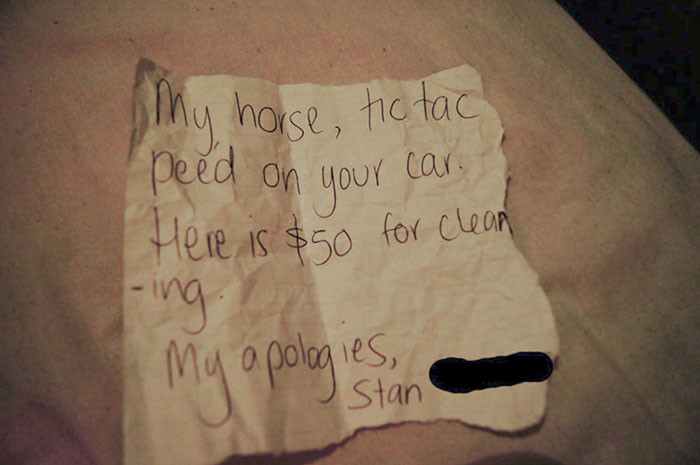 My horse, tic tac
peed on your car.
Here is $50 for clean
-ing.
My apologies,
Stan